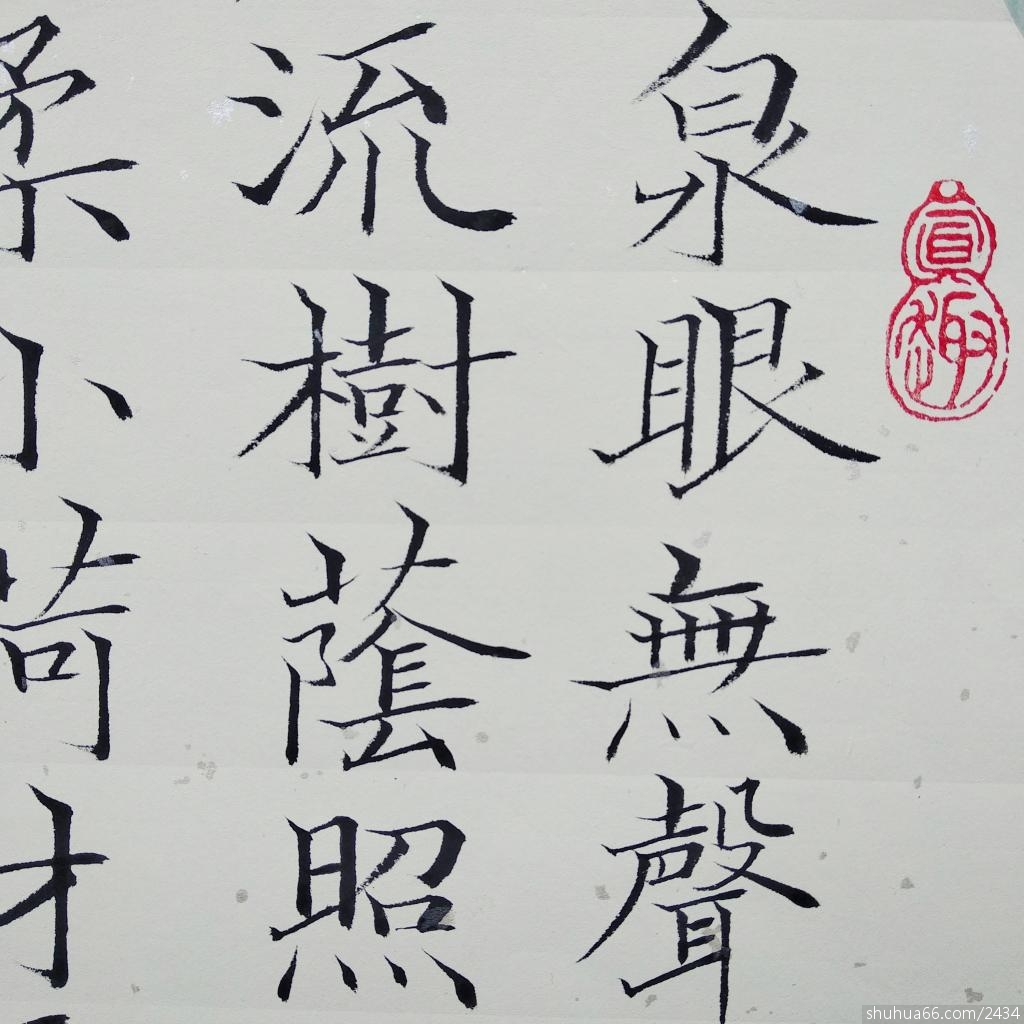 真趣
泉眼無聲
流樹蔭照
柔小荷才
shuhua66.com/2434